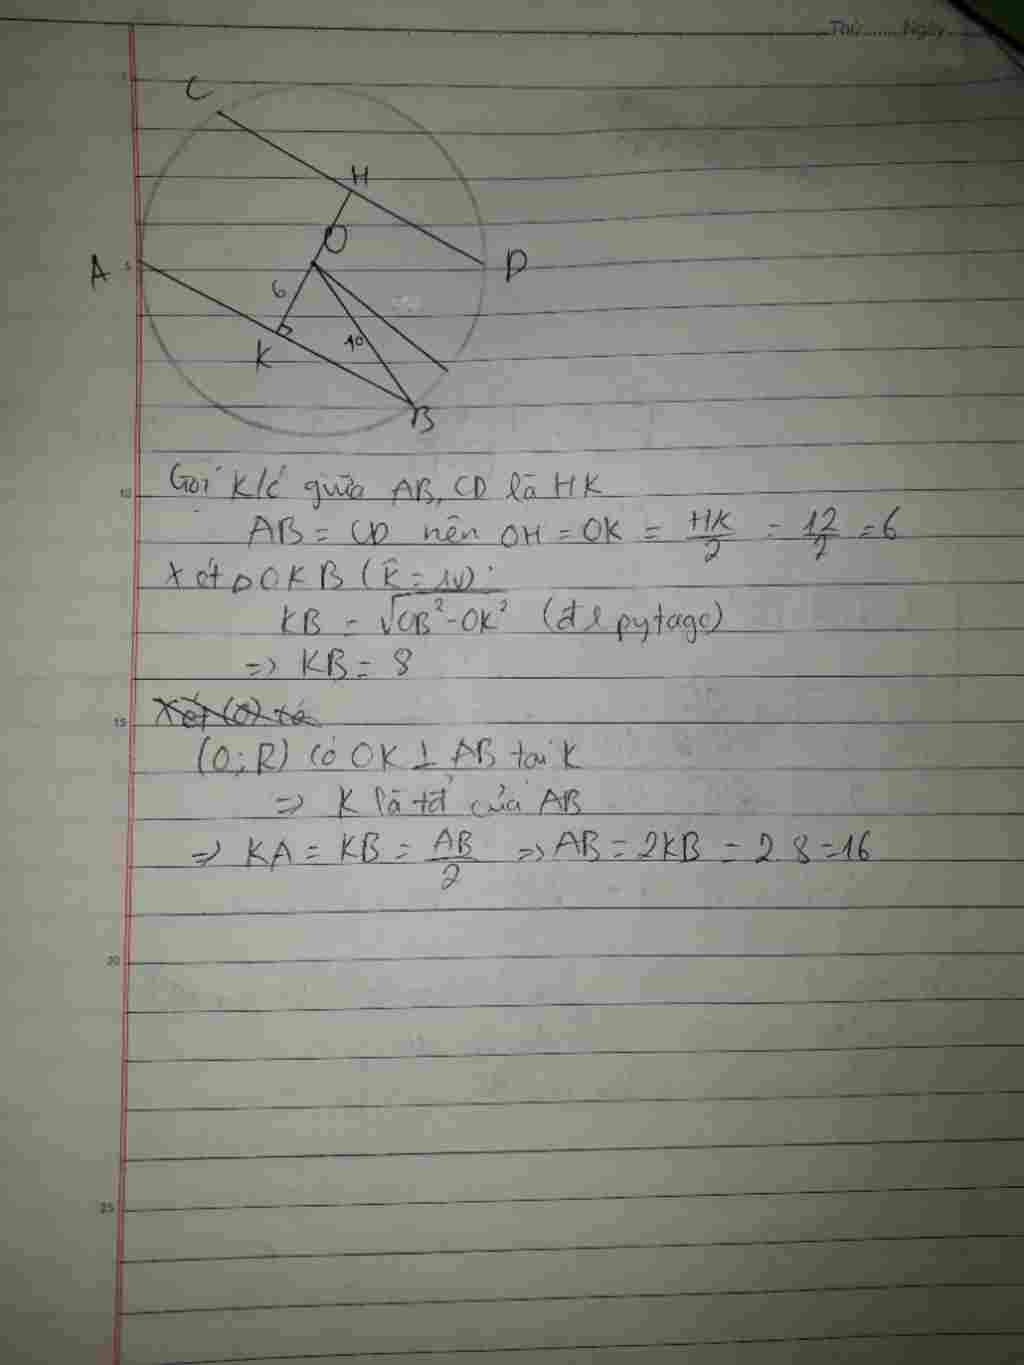 Thứ...... Ngày......
C
H
O
A
D
6
K
10
B
5
Gọi k/c giữa AB, CD là HK
10
AB = CD nên OH = OK = HK/2 = 12/2 = 6
Xét Δ OKB (K̂ = 1v):
KB = √OB² - OK² (đl pytago)
=> KB = 8
15
(O; R) có OK ⊥ AB tại K
=> K là tđ của AB
=> KA = KB = AB/2 => AB = 2KB = 2.8 = 16
20
25